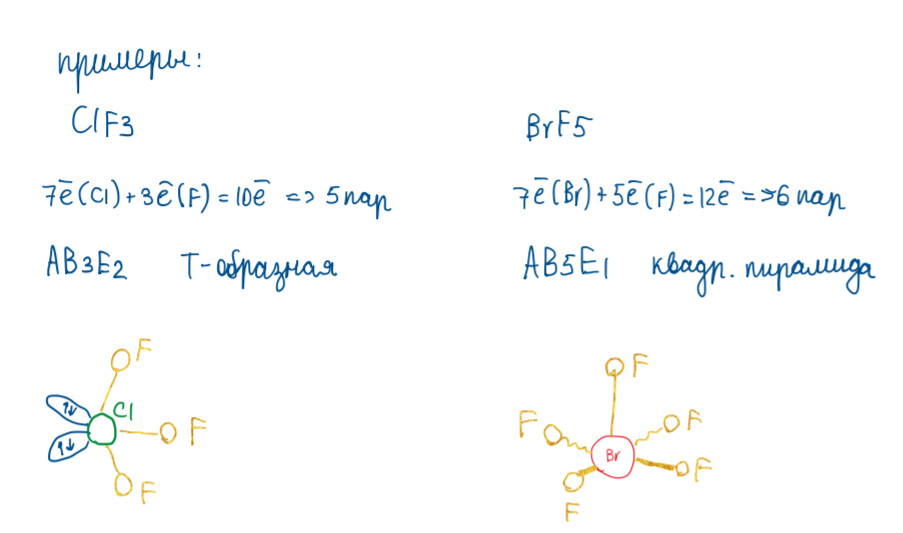 примеры:
ClF3
7ē(Cl)+3ē(F)=10ē => 5 пар
AB3E2 Т-образная
F
Cl
↑↓
F
↑↓
F
BrF5
7ē(Br)+5ē(F)=12ē =>6 пар
AB5E1 квадр. пирамида
F
F
F
Br
F
F